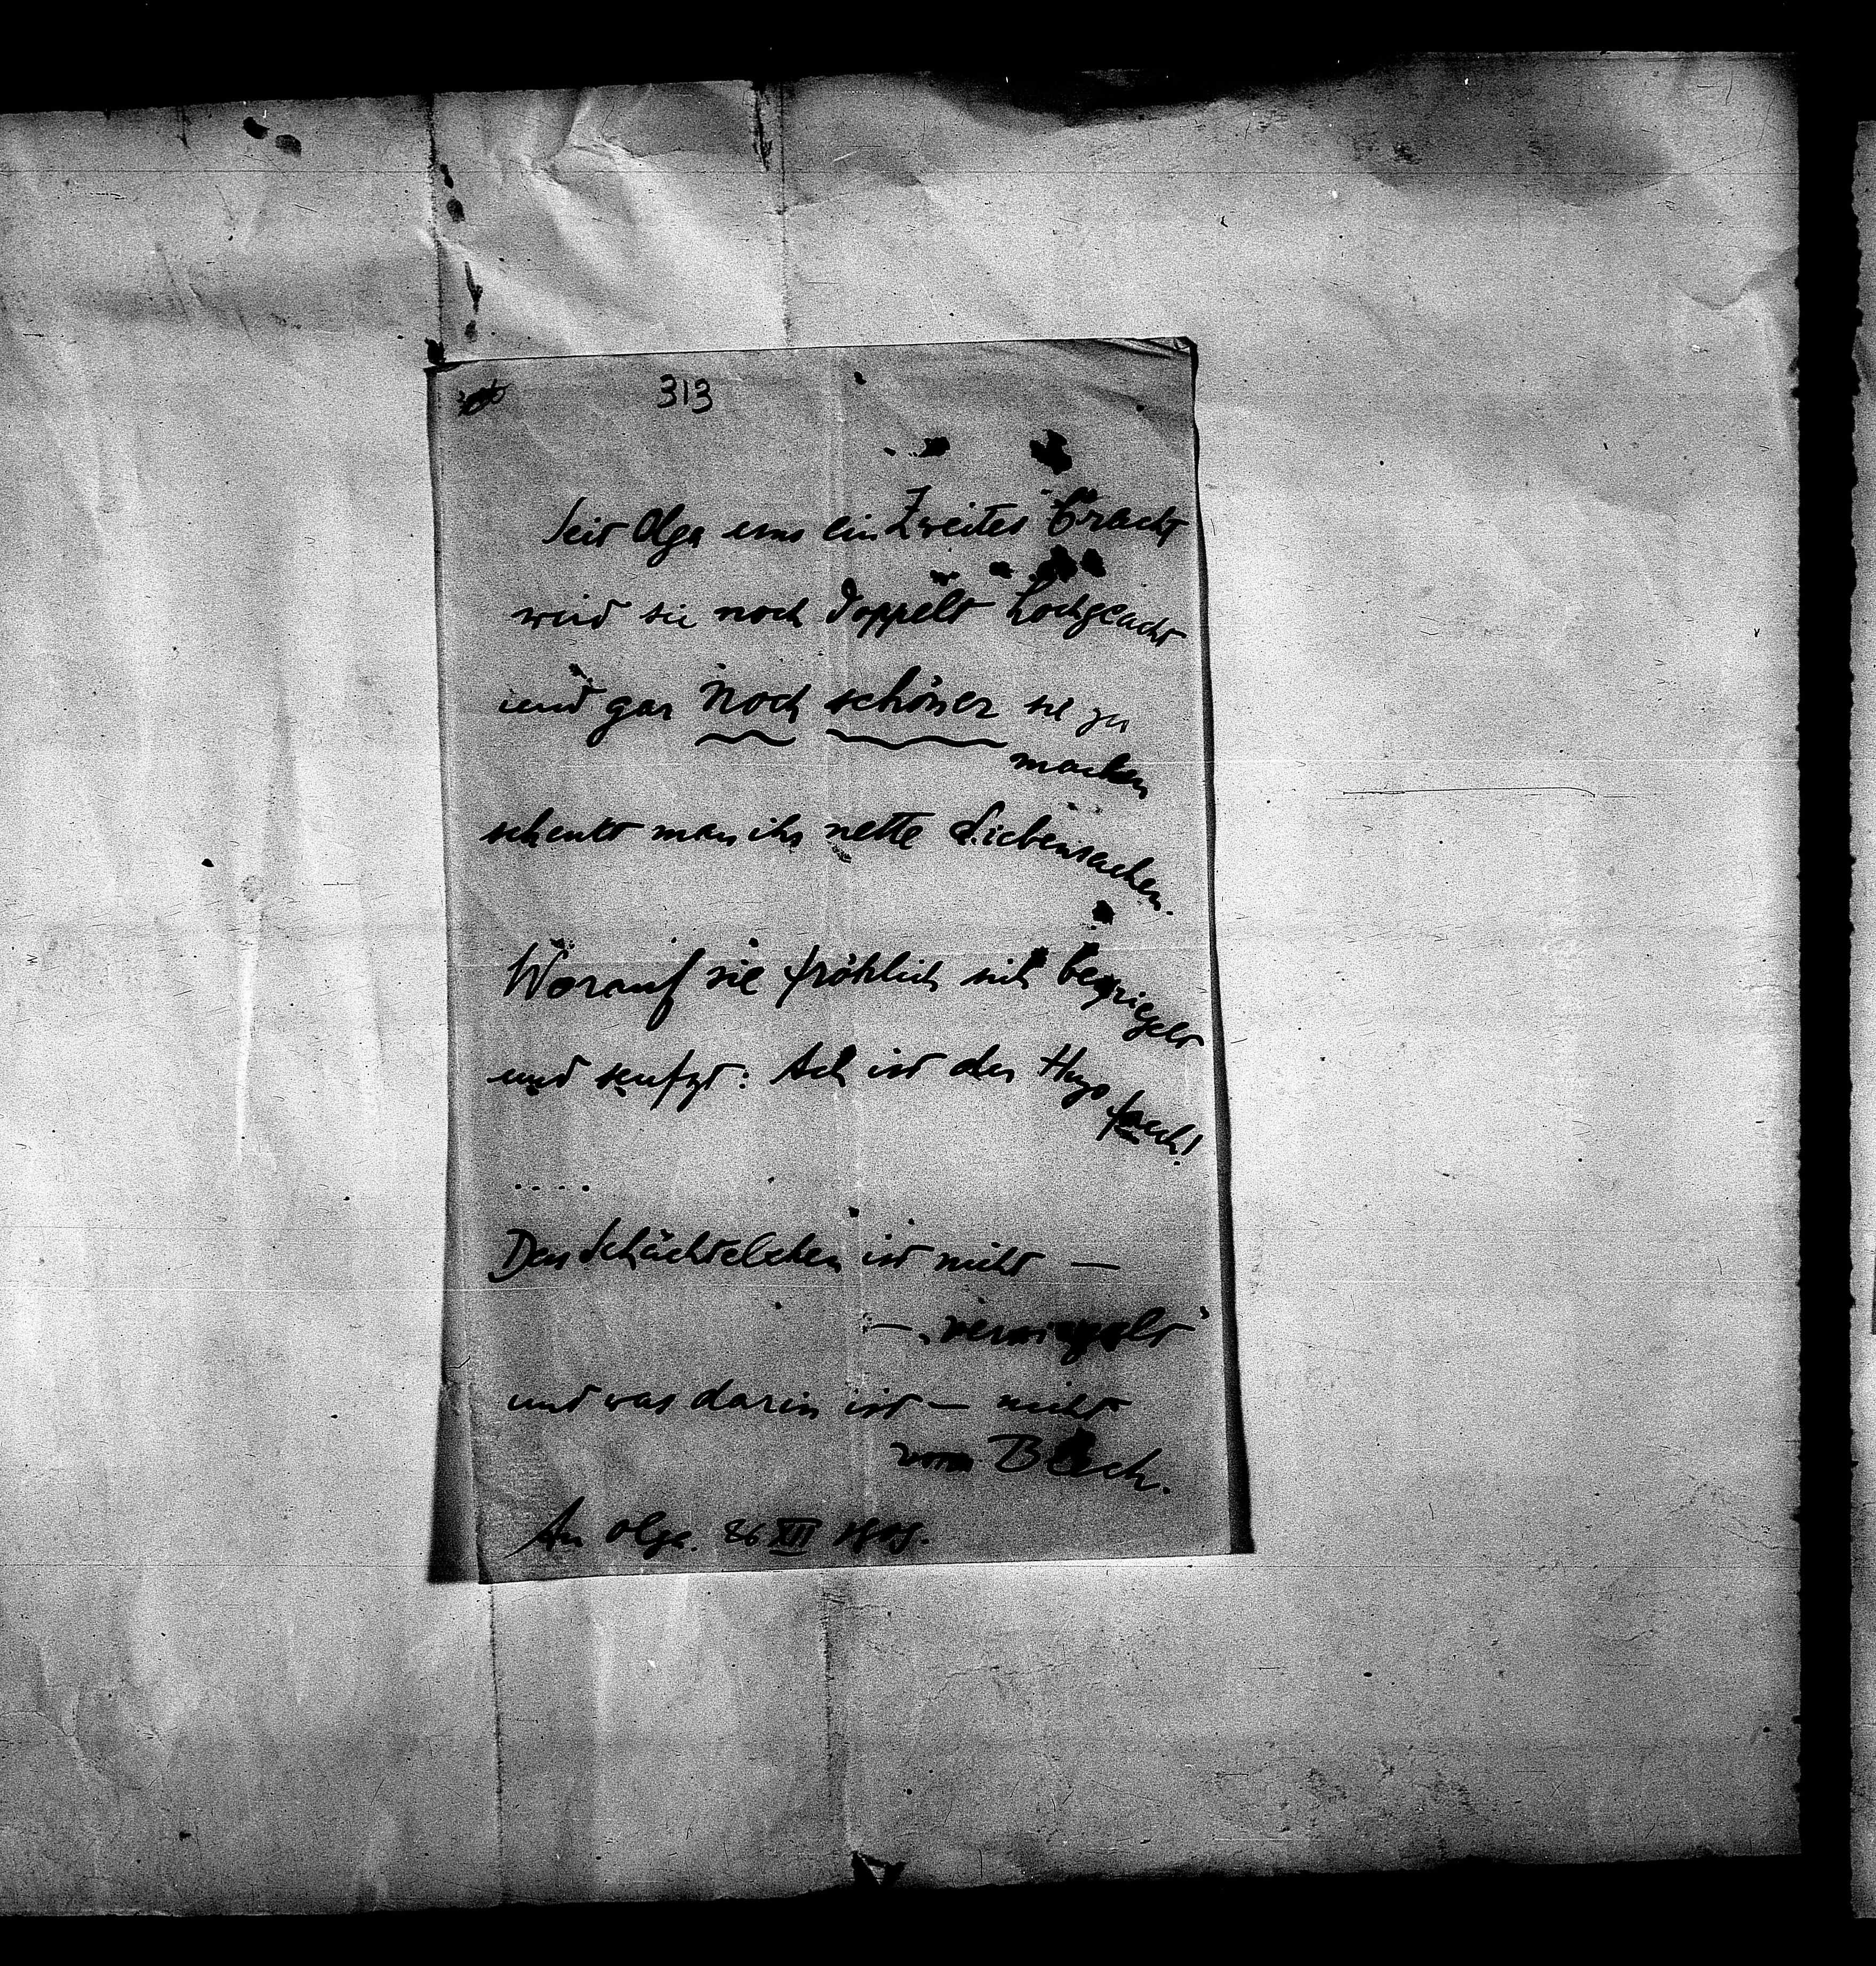 313
Seit Olga uns ein Zweites bracht
wird sie noch doppelt hochgeacht
und gar noch schöner sie zu
machen
schenkt man ihr nette Siebensachen.
Worauf sie fröhlich sich bespiegelt
und seufzt: Ach ist der Hugo frech!
.....
Das Schächtelchen ist nicht —
— „versiegelt“
und was darin ist — nicht
vom Blech.
An Olga. 26 XII